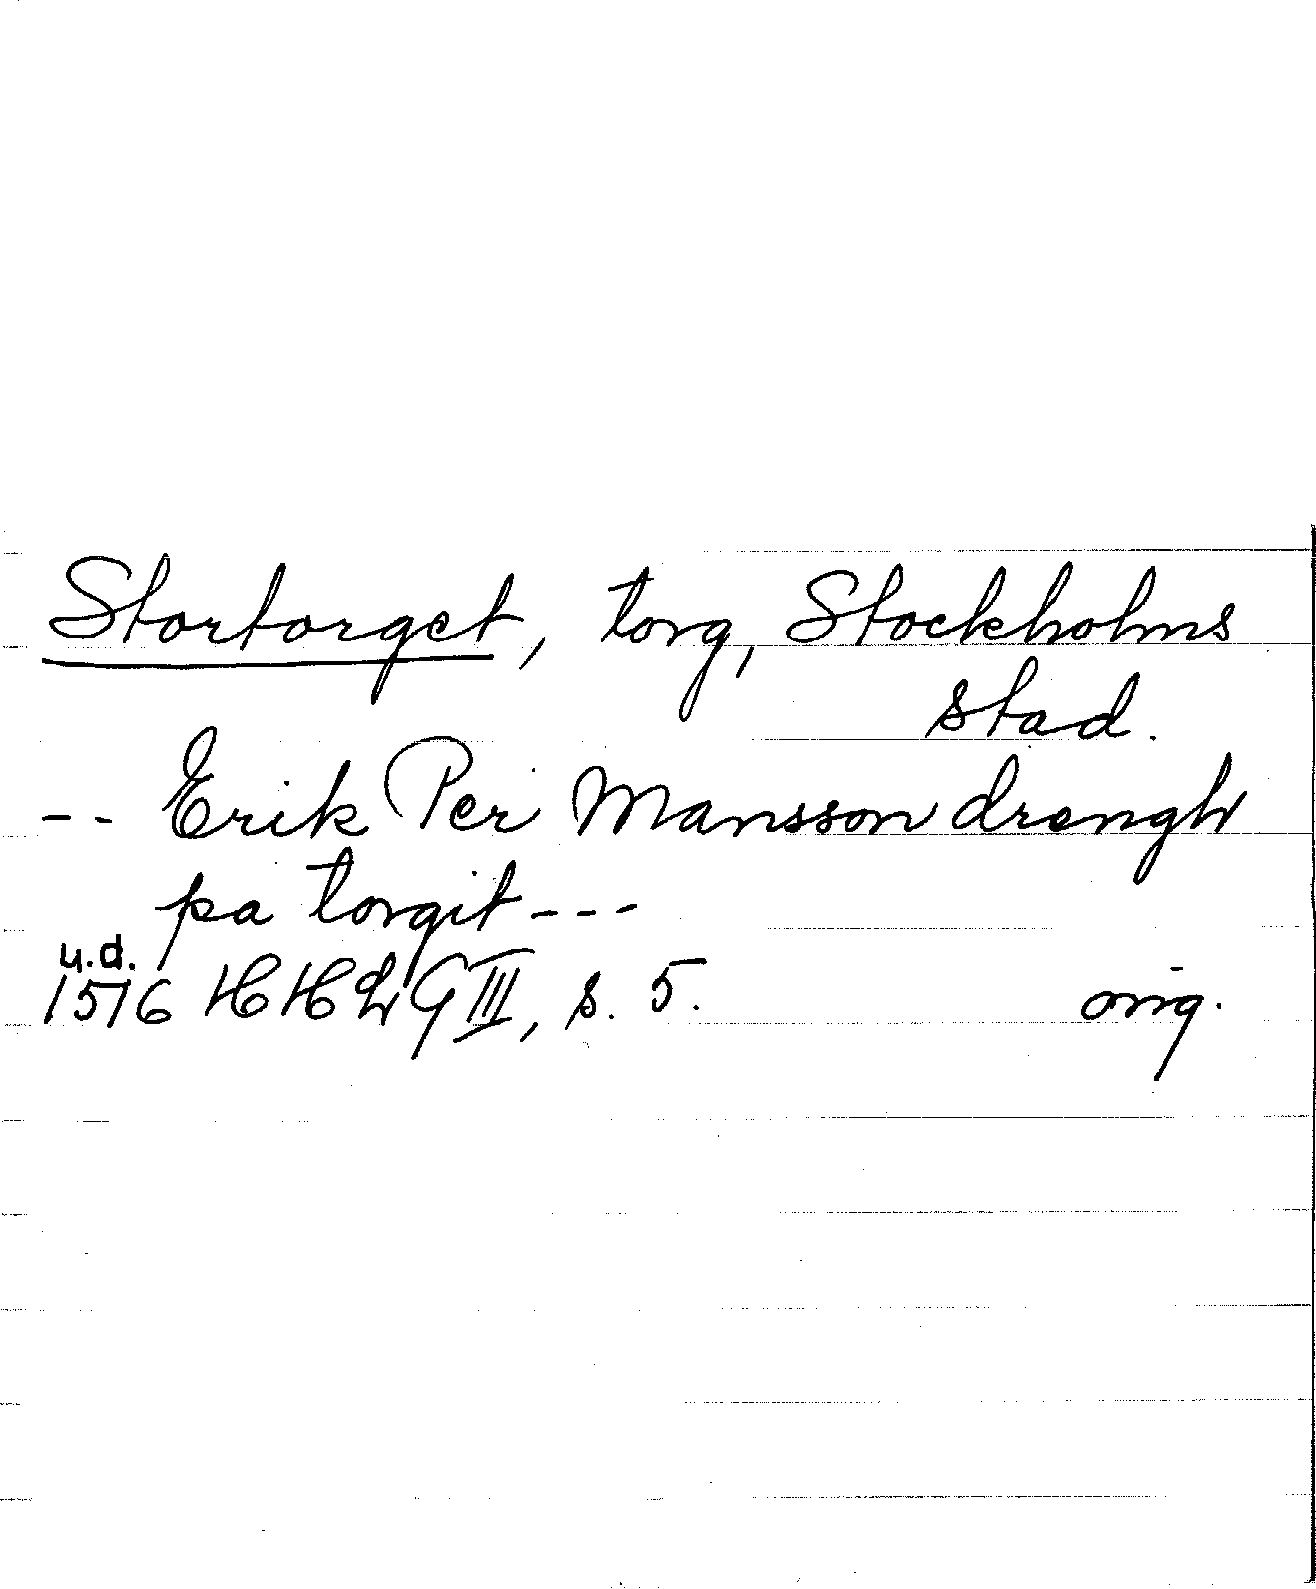 Stortorget, torg, Stockholms
stad.
-- Erik Per Mansson drengh
pa torgit ---
u.d.
1576 HHLG III, s. 5. orig.